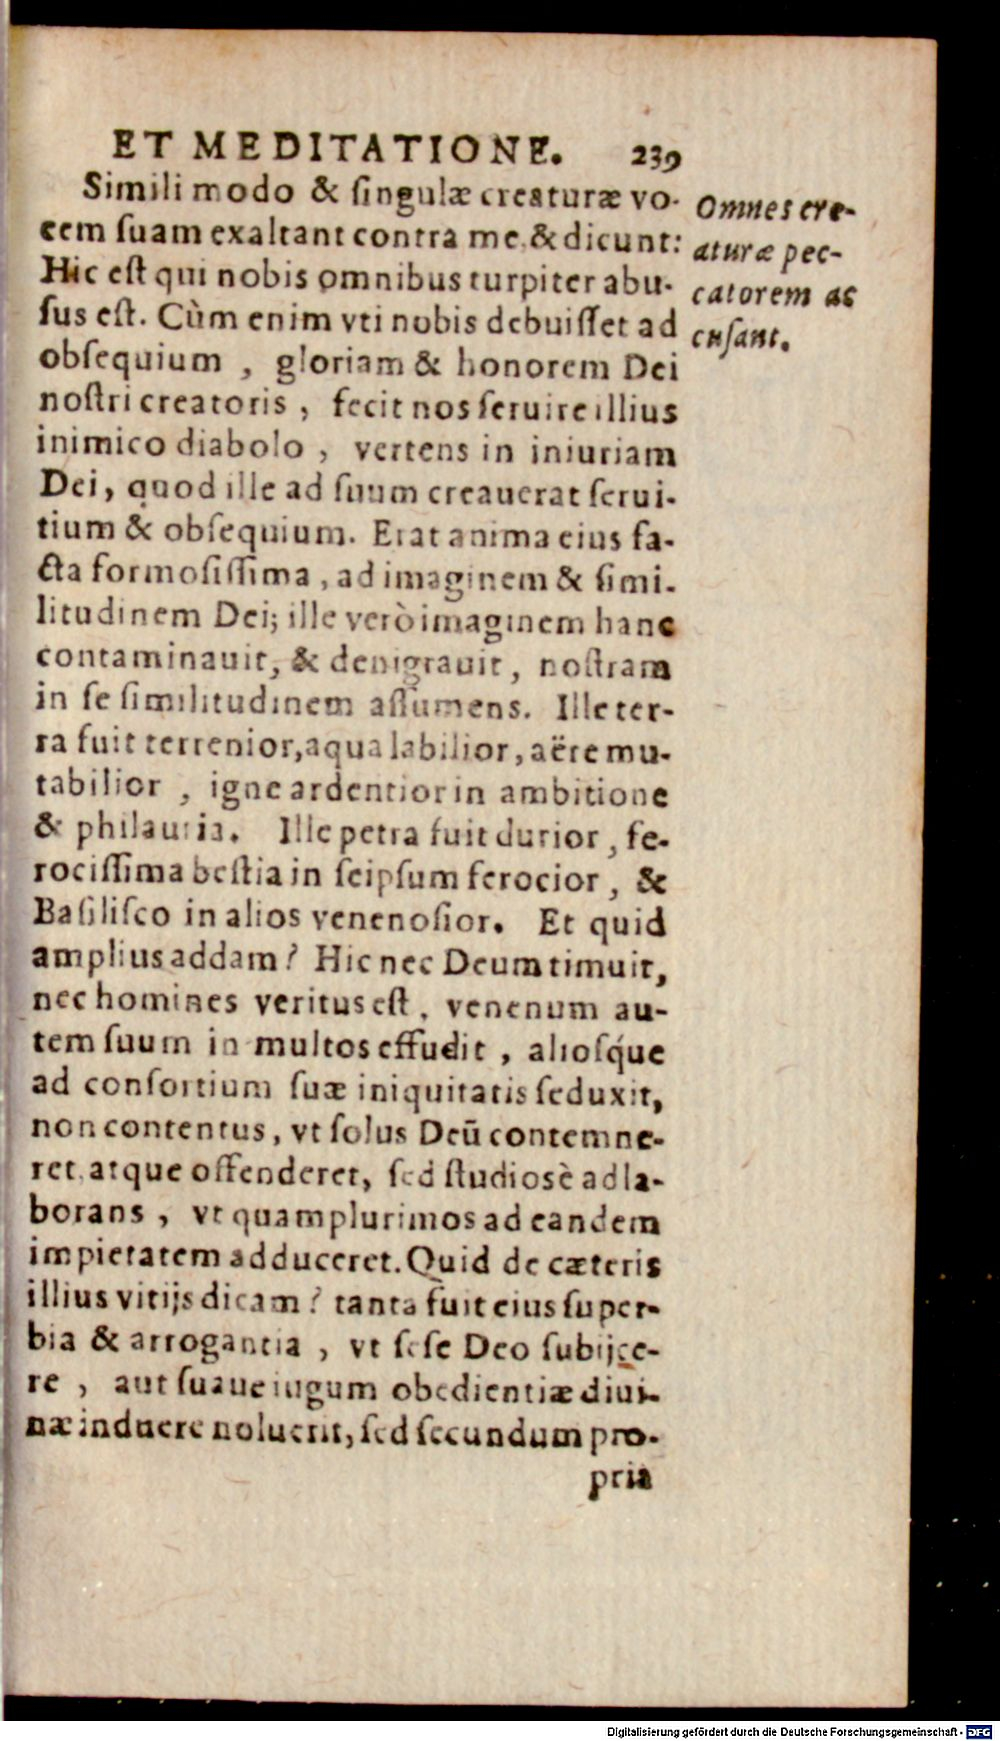 ET MEDITATIONE. 239
Simili modo & ſingulæ creaturæ vo-
cem ſuam exaltant contra me, & dicunt:
Hic eſt qui nobis omnibus turpiter abu-
ſus eſt. Cùm enim vti nobis debuiſſet ad
obſequium , gloriam & honorem Dei
noſtri creatoris , fecit nos ſeruire illius
inimico diabolo , vertens in iniuriam
Dei, quod ille ad ſuum creauerat ſerui-
tium & obſequium. Erat anima eius fa-
cta formoſiſſima , ad imaginem & ſimi-
litudinem Dei; ille verò imaginem hanc
contaminauit, & denigrauit , noſtram
in ſe ſimilitudinem aſſumens. Ille ter-
ra fuit terrenior, aqua labilior, aëre mu-
tabilior , igne ardentior in ambitione
& philautia. Ille petra fuit durior , fe-
rociſſima beſtia in ſeipſum ferocior , &
Baſiliſco in alios venenoſior. Et quid
amplius addam? Hic nec Deum timuit,
nec homines veritus eſt , venenum au-
tem ſuum in multos effudit , alioſq́ue
ad conſortium ſuæ iniquitatis ſeduxit,
non contentus, vt ſolus Deū contemne-
ret, atque offenderet, ſed ſtudioſè adla-
borans , vt quamplurimos ad eandem
impietatem adduceret. Quid de cæteris
illius vitijs dicam? tanta fuit eius ſuper-
bia & arrogantia , vt ſeſe Deo ſubijce-
re , aut ſuaue iugum obedientiæ diui-
næ induere noluerit, ſed ſecundum pro-
pria
Omnes cre-
aturæ pec-
catorem ac
cuſant.
Digitalisierung gefördert durch die Deutsche Forschungsgemeinschaft - DFG